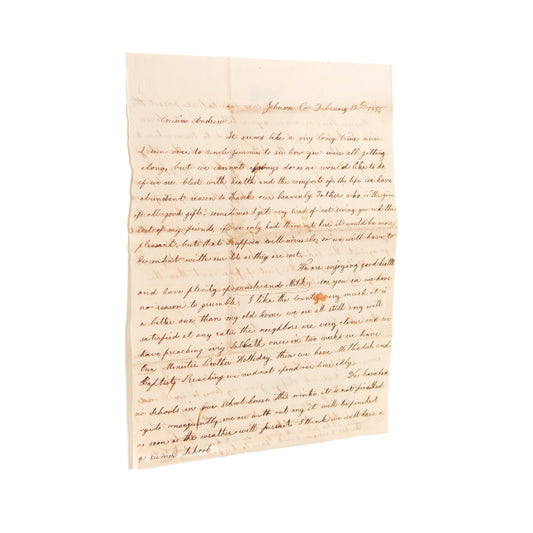 Johnson Co. February 12th 185
Cousin Andrew
It seems like a very long time since
I seen over to see how you were all getting
along, but we cannot always do as we would like to do
if we are blest with health and the comforts of this life we have
abundant reason to thank our Heavenly Father who is the giver
of all good gifts, sometimes I get very tired of not seeing you and the
rest of my friends, if we only had them out here it would be more
pleasant, but that I suppose will never be, so we will have to
be content with our lot as they are cast.
We are enjoying good health
and have plenty of and Milk, you see we have
no reason to grumble; I like the country very much it is
a better one than my old home we are all still very well
satisfied at any rate, the neighbors are very clever and we
have preaching every Sabbath once in two weeks we have
Our Minister Brother Holliday, then we have Methodist and
Baptist Preaching we need not spend our time idly.
We have had
no Schools in our School house this winter it is not finished
consequently we are without any it will be finished
as soon as the weather will permit I think we will have a
a summer School.